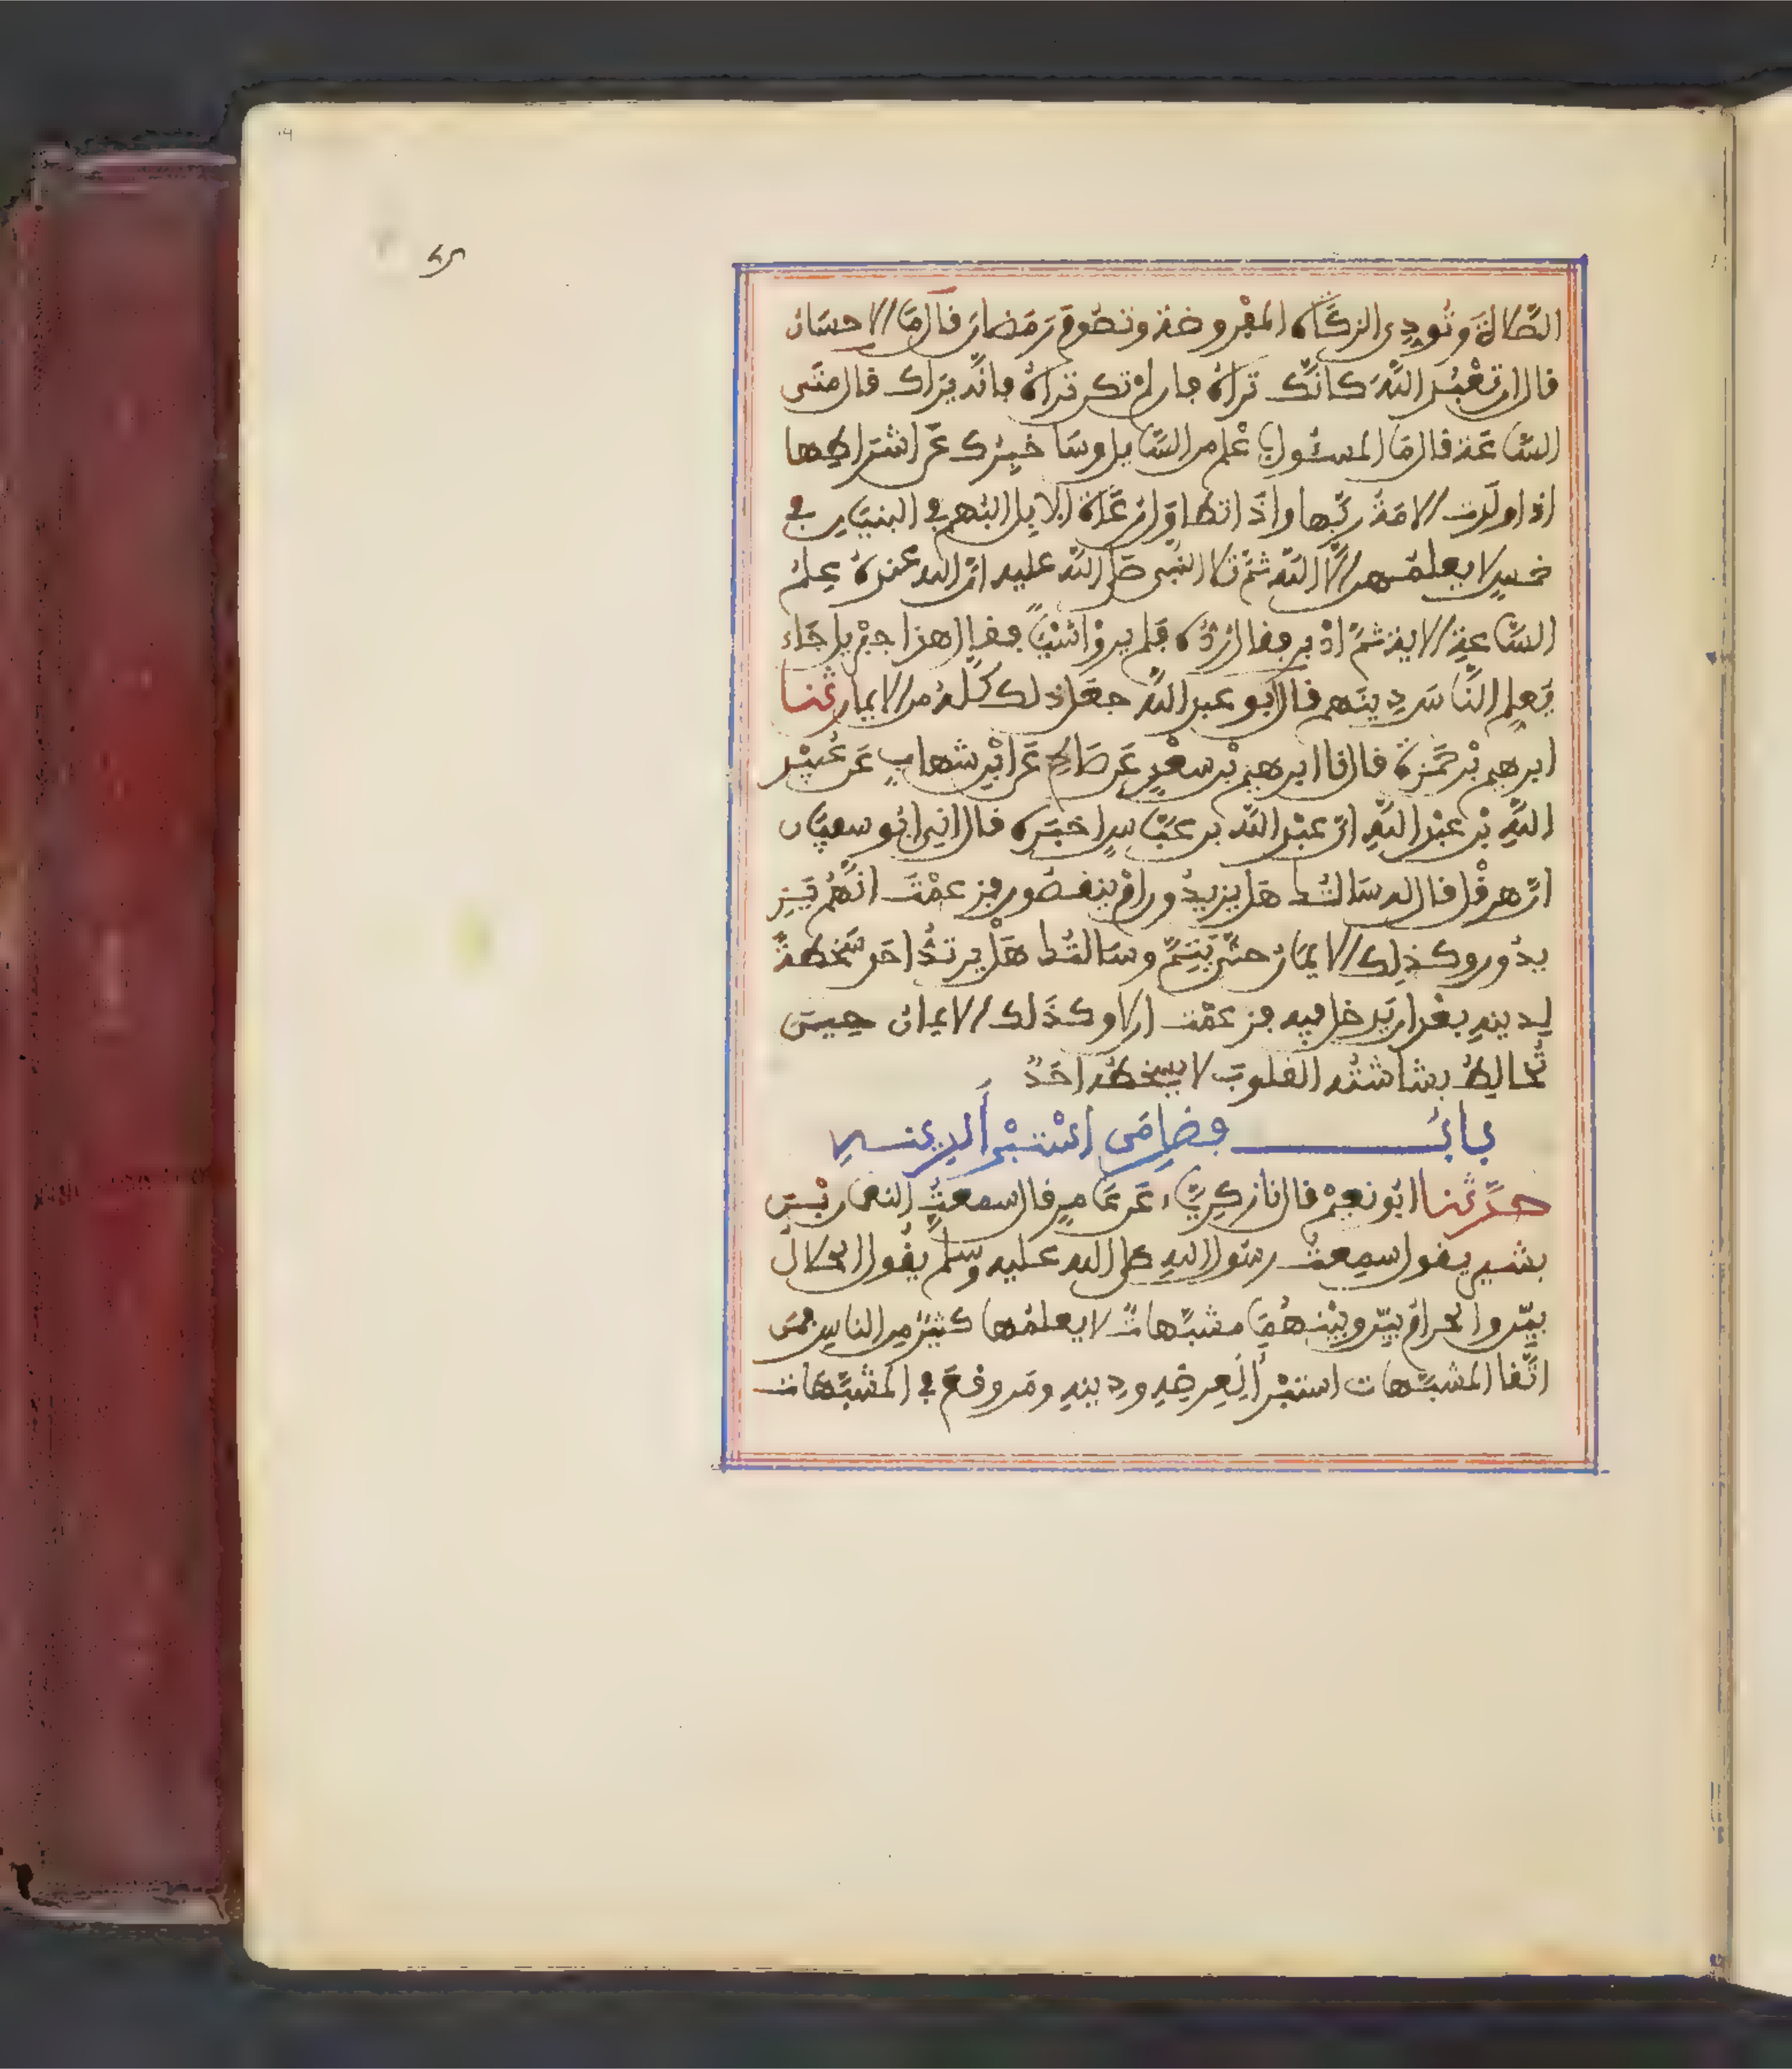 الصَّلاةَ وتُودِي الزكَّاة المفْروضة وتصُومَ رَمَضانَ قال مَا الاحسَان
قال ان تعْبُدَ اللَّهَ كانَّك تراهُ فان لمْ تكن تراهُ فانَّه يَرَاك قال متَى
السَّاعَة قال مَا المسئُول باعْلم من السَّايل وسَا خبِرُك عَن اشْرَاطِها
اذا ولَدَت الامَةُ ربَّها واذَا تطاوَلَ رُعَاة الابل البُهم في البنيَان في
خمسٍ لا يعلمُهن الَّا اللَّه ثمَّ تلا النَّبى صَلى اللَّه عليه انَّ الله عندهُ عِلمُ
السَّاعةِ الاية ثمَّ ادْبر فقال رُدُّوه فلم يروْا شَيْئًا فقال هذا جبْريل جَاء
يَعلِم النَّاسَ دِينَهم قال ابو عبد اللَّه جعَل ذلك كُلَّه من الايمان ثنا
ابرهيم بْن حَمْزة قال نا ابرهيم بْن سعْدٍ عَن صَالح عَن ابْن شهابٍ عَن عُبيْد
اللَّهِ بْن عبْد اللَّهِ انَّ عبْد اللَّه بن عبَّاسٍ اخبَره قال اخبرني ابُو سفيَان
انَّ هرقْل قال له سَالتُك هَل يزيدُون امْ ينقصُون فزعمْتَ انَّهُم يَزِ
يدُون وكذلِك الايمَان حتَّى يَتِمَّ وسَالتُك هَلْ يرتدُّ احَد سَخطةً
لدينِه بعْد ان يَدخل فيه فزعمْت ان لا وكذَلك الايمان حِين
تُخالِطُ بشاشتُه القلوبَ لا يسْخطُه احَدٌ
بابُ فضل مَن اسْتبْرأ لدينه
حدَّثنا ابُو نعيْم قال نا زكرِيَّاء عَن عَامرٍ قال سمعتُ النعمان بْن
بشير يقول سمِعتُ رسُول اللهِ صلى الله عليه وسلم يقُول الحلالُ
بيِّن والحرامُ بيِّن وبيْنهُمَا مشبَّهاتٌ لا يعلمُها كثيْرٌ من الناس فمَن
اتَّقا المشبَّهات استبْرأ لِعِرضِه ودِينِه ومَن وقعَ في المشبَّهات